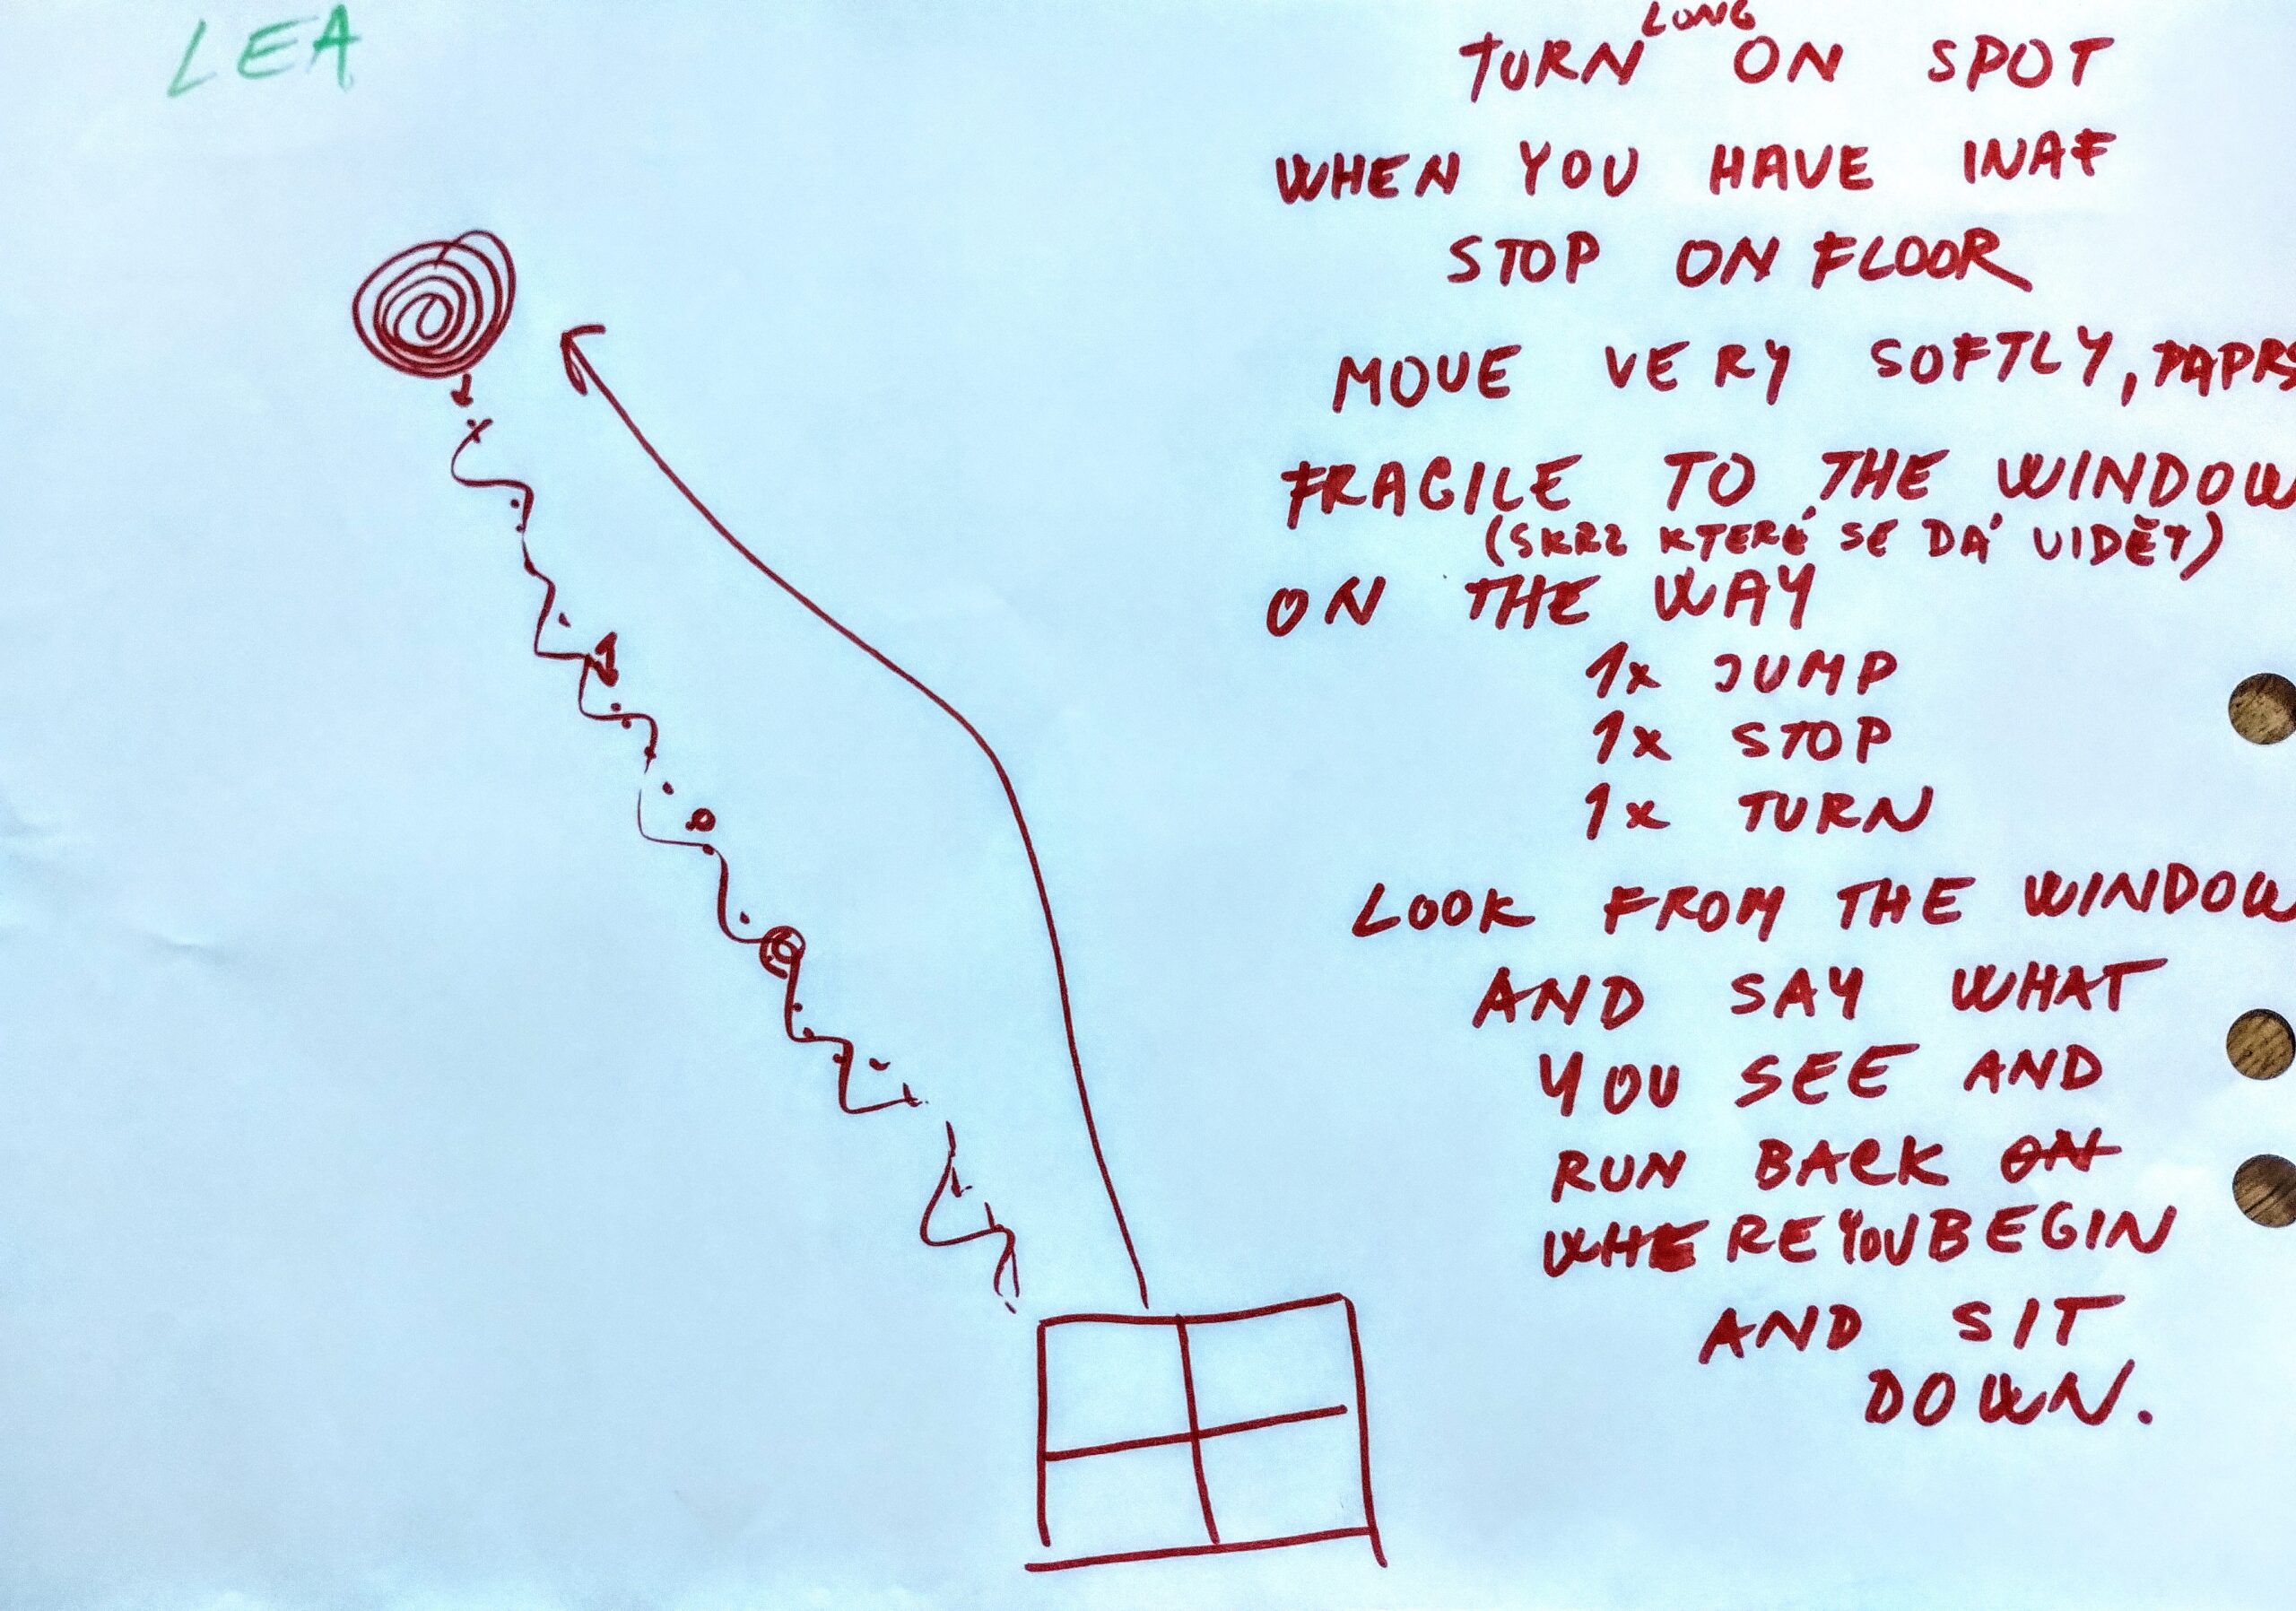 LEA
LONG
TURN ON SPOT
WHEN YOU HAVE INAF
STOP ON FLOOR
MOVE VERY SOFTLY,
FRAGILE TO THE WINDOW
(SKRZ KTERÉ SE DÁ VIDĚT)
ON THE WAY
1x JUMP
1x STOP
1x TURN
LOOK FROM THE WINDOW
AND SAY WHAT
YOU SEE AND
RUN BACK ON
WHERE YOU BEGIN
AND SIT
DOWN.